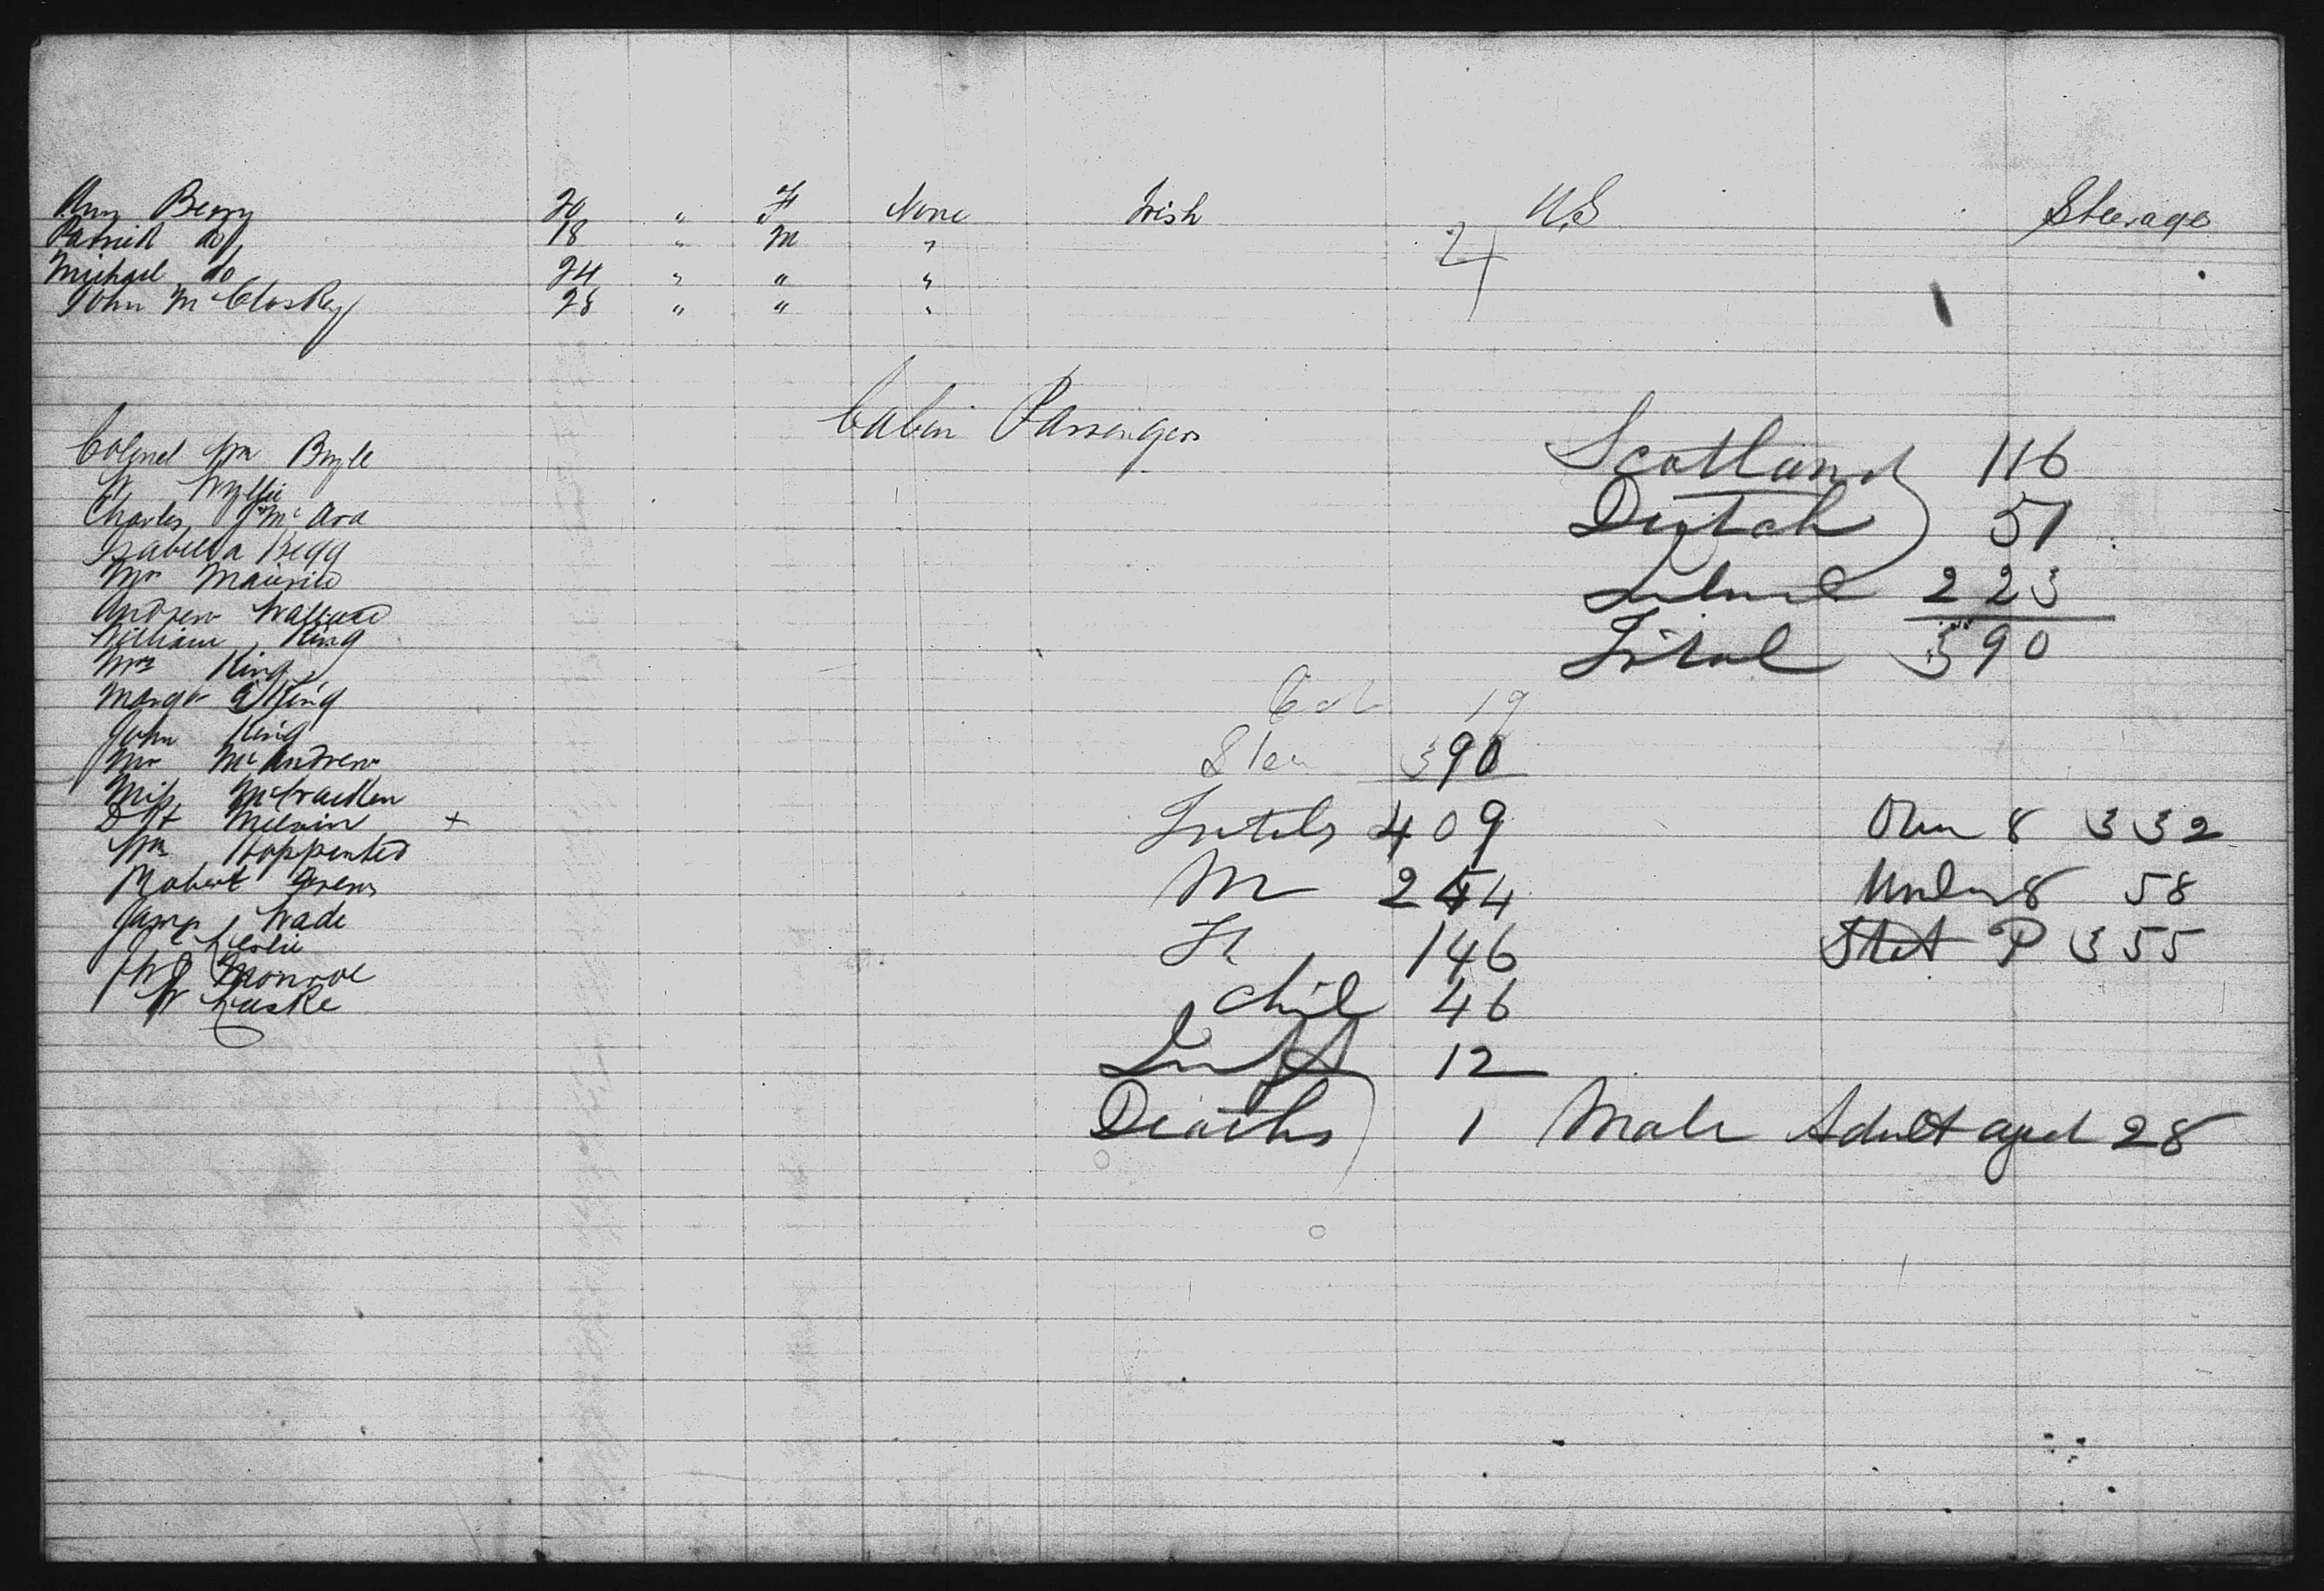 Ann Berry 20 " F None Irish U.S Steerage
Patrick do 18 " M "
Michael do 24 " " " 4
John McCloskey 28 " " "
Cabin Passengers
Colonel Wm
W Wyllie
Charles J McAra
Isabella Begg
Mr Maurice
Andrew Wallace
William King
Mrs King
Margt King
John King
Mr McAndrew
Miss McCracken
Melvin +
Wm
Robert
James Wade
Leslie
Monroe
W Laske
Scotland 116
Dutch 51
Ireland 223
Total 390
Cab 19
Stee 390
Totals 409
M 254
F 146
Chil 46
Inft 12
Deaths 1 Male Adult aged 28
Over 8 332
Under 8 58
Stat P 355